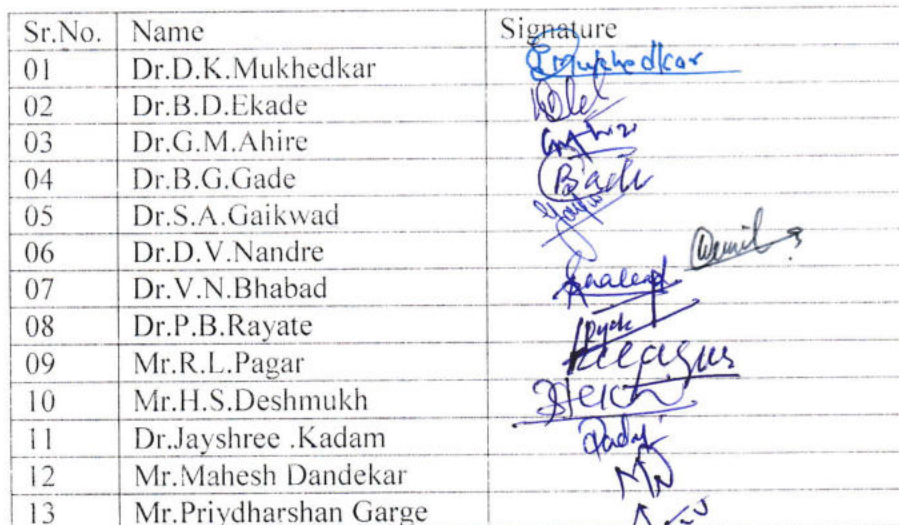 Sr.No. Name Signature
01 Dr.D.K.Mukhedkar Dmukhedkar
02 Dr.B.D.Ekade
03 Dr.G.M.Ahire
04 Dr.B.G.Gade
05 Dr.S.A.Gaikwad
06 Dr.D.V.Nandre
07 Dr.V.N.Bhabad
08 Dr.P.B.Rayate
09 Mr.R.L.Pagar
10 Mr.H.S.Deshmukh
11 Dr.Jayshree .Kadam
12 Mr.Mahesh Dandekar
13 Mr.Priydharshan Garge